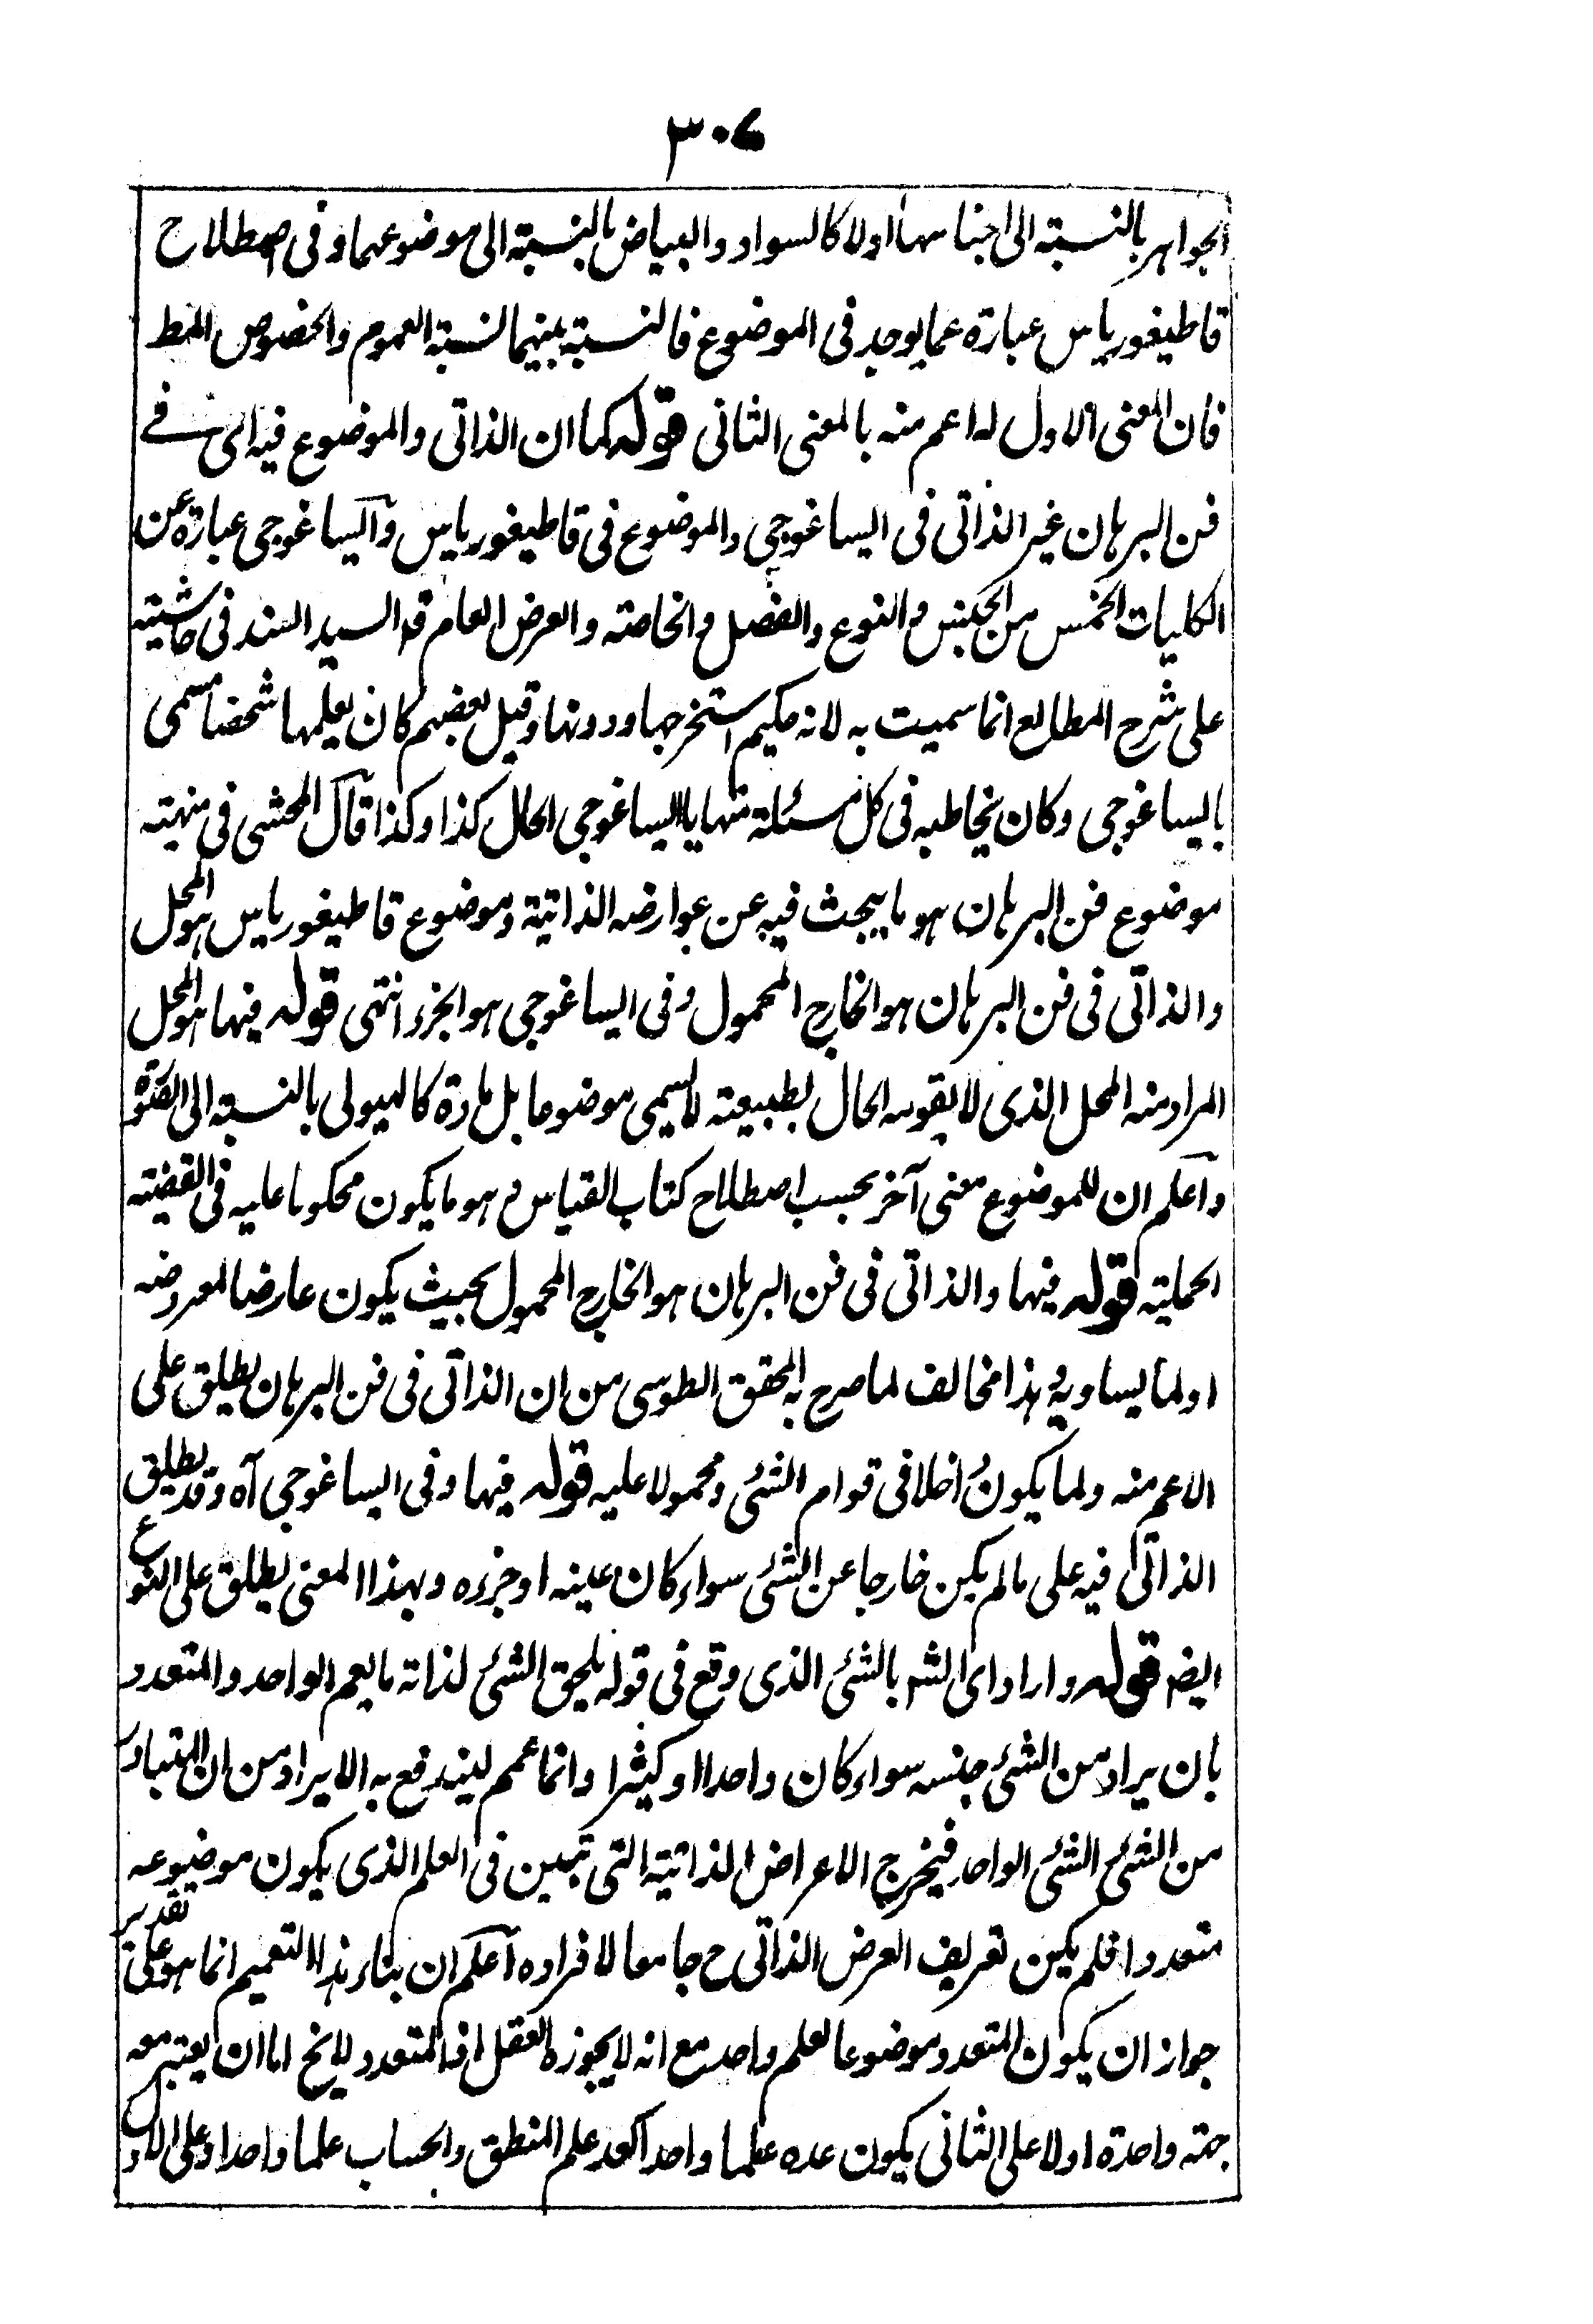 ٣٠٧
الجواهر بالنسبة الى اجناسها اولا كالسواد والبياض بالنسبة الى موضوعهما وفى اصطلاح
قاطيغورياس عبارة عما يوجد فى الموضوع فالنسبة بينهما نسبة العموم والخصوص المط
فان المعنى الاول له اعم منه بالمعنى الثانى قوله كما ان الذاتى والموضوع فيه اى فى
فن البرهان غير الذاتى فى ايساغوجى والموضوع فى قاطيغورياس وآيساغوجى عبارة عن
الكليات الخمس من الجنس والنوع والفصل والخاصة والعرض العام قد السيد السند فى حاشيته
على شرح المطالع انما سميت به لانه حكيم استخرجها ودونها وقيل بعضهم كان يعلمها شخصا مسمى
بايساغوجى وكان يخاطبه فى كل مسئلة منها يا ايساغوجى الحال كذا وكذا قال المحشى فى منهيته
موضوع فن البرهان هو ما يبحث فيه عن عوارضه الذاتية وموضوع قاطيغورياس هو المحل
والذاتى فى فن البرهان هو الخارج المحمول وفى ايساغوجى هو الجزء انتهى قوله فيها هو المحل
المراد منه المحل الذى لا يقومه الحال بطبيعته لا يسمى موضوعا بل مادة كالهيولى بالنسبة الى الصورة
وآعلم ان للموضوع معنى آخر بحسب اصطلاح كتاب القياس وهو ما يكون محكوما عليه فى القضية
الحملية قوله فيها والذاتى فى فن البرهان هو الخارج المحمول بحيث يكون عارضا لمعروضه
او لما يساويه وهذا مخالف لما صرح به المحقق الطوسى من ان الذاتى فى فن البرهان يطلق على
الاعم منه ولما يكون داخلا فى قوام الشئ ومحمولا عليه قوله فيها وفى ايساغوجى آه وقد يطلق
الذاتى فيه على ما لم يكن خارجا عن الشئ سواء كان عينه او جزءه وبهذا المعنى يطلق على النوع
ايضا قوله واراد اى الش بالشئ الذى وقع فى قوله يلحق الشئ لذاته ما يعم الواحد والمتعدد
بان يراد من الشئ جنسه سواء كان واحدا او كثيرا وانما عمم ليندفع به الايراد من ان المتبادر
من الشئ الشئ الواحد فيخرج الاعراض الذاتية التى تبين فى العلم الذى يكون موضوعه
متعددا فلم يكن تعريف العرض الذاتى ح جامعا لافراده آعلم ان بناء هذا التعميم انما هو على تقدير
جواز ان يكون المتعدد موضوعا لعلم واحد مع انه لا يجوزه العقل اذ المتعدد لا يخ اما ان يعتبر معه
جهة واحدة اولا على الثانى يكون عده علما واحدا كعد علم المنطق والحساب علما واحدا وعلى الاول